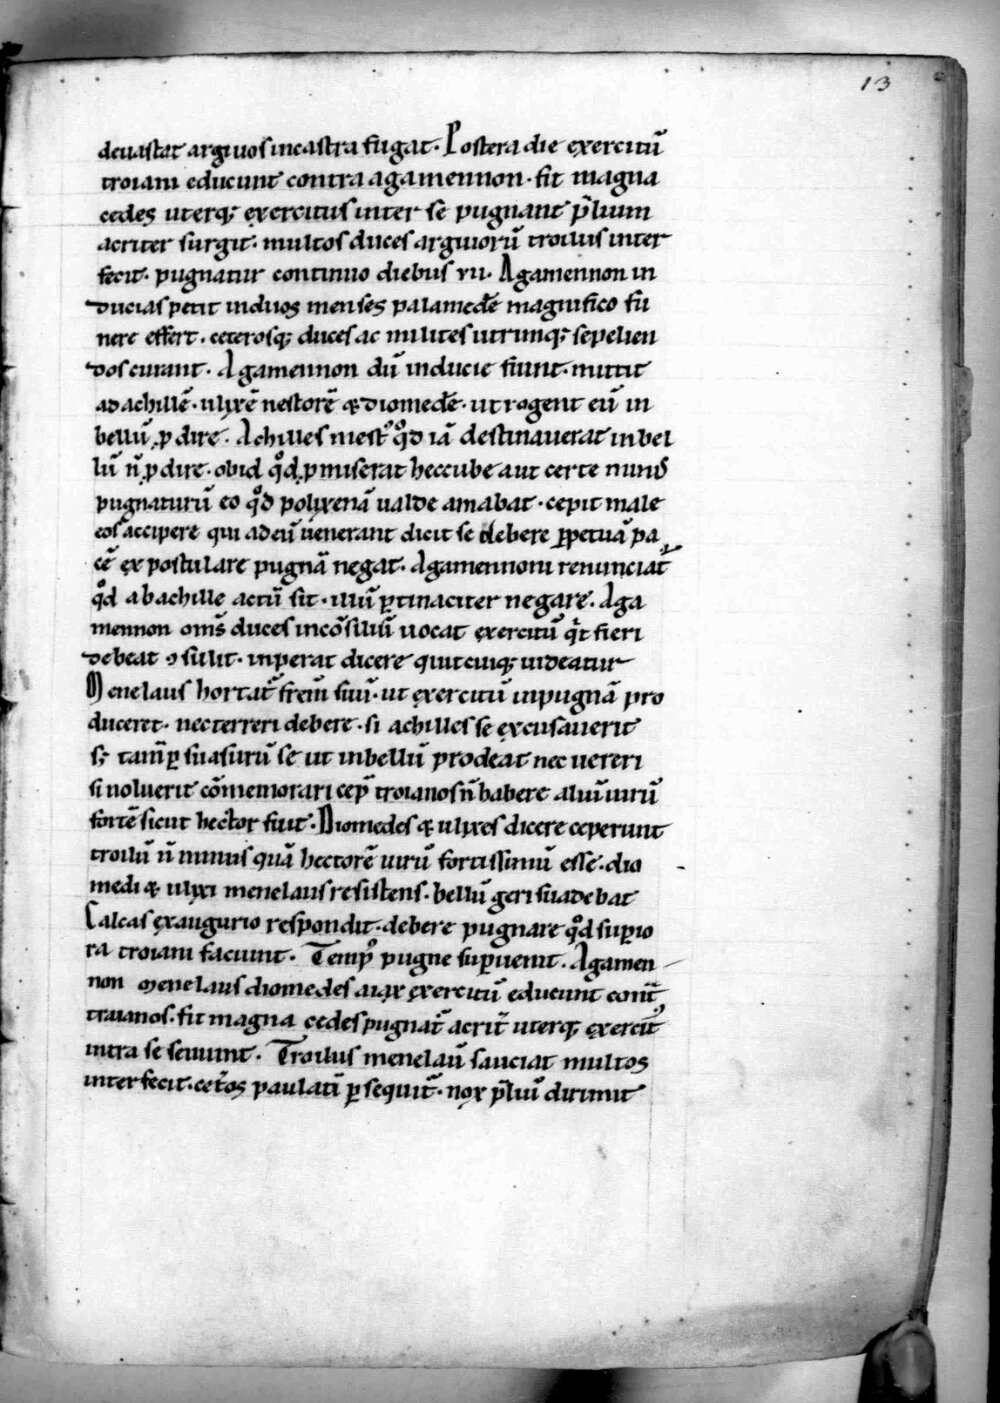 13
deuastat argiuos incastra fugat. Postera die exercitū
troiani educunt contra agamennon. fit magna
cedes uterq; exercitus inter se pugnant p̄lium
acriter surgit. multos duces argiuiorū troilus inter
fecit. pugnatur continuo diebus vii. Agamennon in
ducias petit induos menses palamedē magnifico fu
nere effert. ceterosq; duces ac milites utrunq; sepelien
dos curant. Agamennon dū inducie fiunt. mittit
ad achillē. ulixē nestorē & diomedē. ut rogent eū in
bellū ꝓdire. Achilles mestꝰ qͦd iā destinauerat in bel
lū n̄ ꝓdire. obid qͦd ꝓmiserat heccube aut certe minꝰ
pugnaturū eo qͦd polixenā ualde amabat. cepit male
eos accipere qui ad eū uenerant dicit se debere ꝑpetuā pa
cē expostulare pugnā negat. Agamennoni renunciat̄
qͦd ab achille actū sit. illū ꝑtinaciter negare. Aga
mennon om̄s duces incōsiliū uocat exercitū qͥt fieri
debeat ꝯsulit. inperat dicere quit cuiq; uideatur
Menelaus hortat̄ frem̄ suū. ut exercitū inpugnā pro
duceret. nec terreri debere. si achilles se excusauerit
s; tam̄ ꝑsuasurū se ut inbellū prodeat nec uereri
si noluerit cōmemorari cep̄ troianos n̄ habere aliū uirū
fortē sicut hector fuit. Diomedes & ulixes dicere ceperunt
troilū n̄ minus quā hectorē uirū fortissimū esse. dio
medi & ulixi menelaus resistens. bellū geri suadebat
Calcas exaugurio respondit. debere pugnare qͦd suꝑio
ra troiani faciunt. Tempꝰ pugne suꝑuenit. Agamen
non menelaus diomedes aiax exercitū educunt cont̄
traianos. fit magna cedes pugnat̄ acrit̄ uterq; exercitꝰ
intra se seuiunt. Troilus menelaū sauciat multos
interfecit. cet̄os paulatī ꝑsequit̄. nox p̄liū dirimit